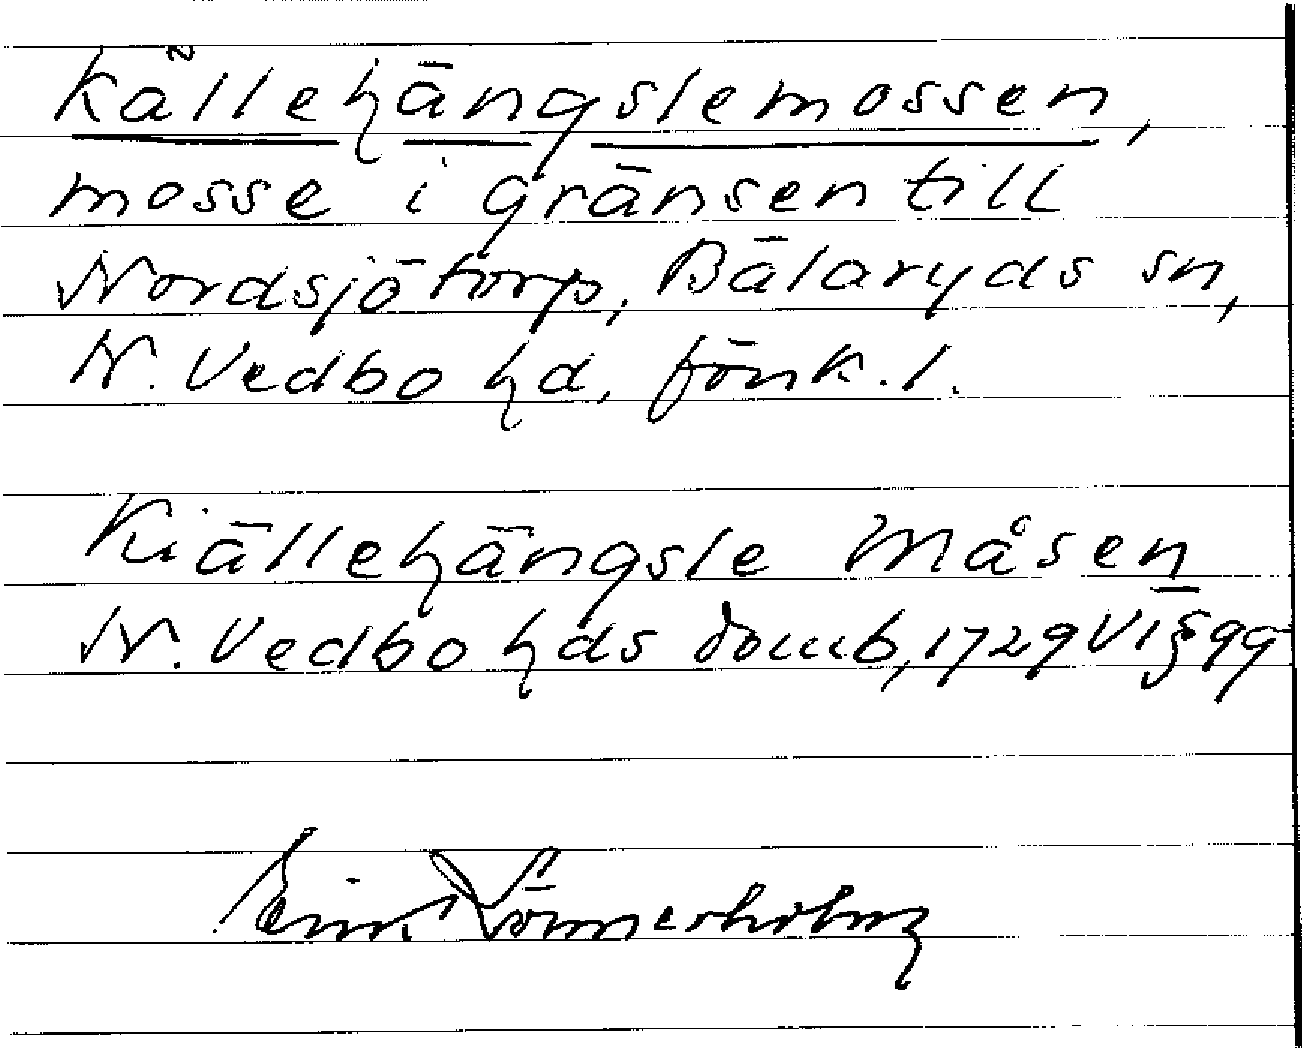 Källehängslemossen,
mosse i gränsen till
Nordsjötorp, Bälaryds sn,
N. Vedbo hd, Jönk. l.
Kiällehängsle Måsen
N. Vedbo hds domb, 1729 VI § 99
Erik Lönnerholm